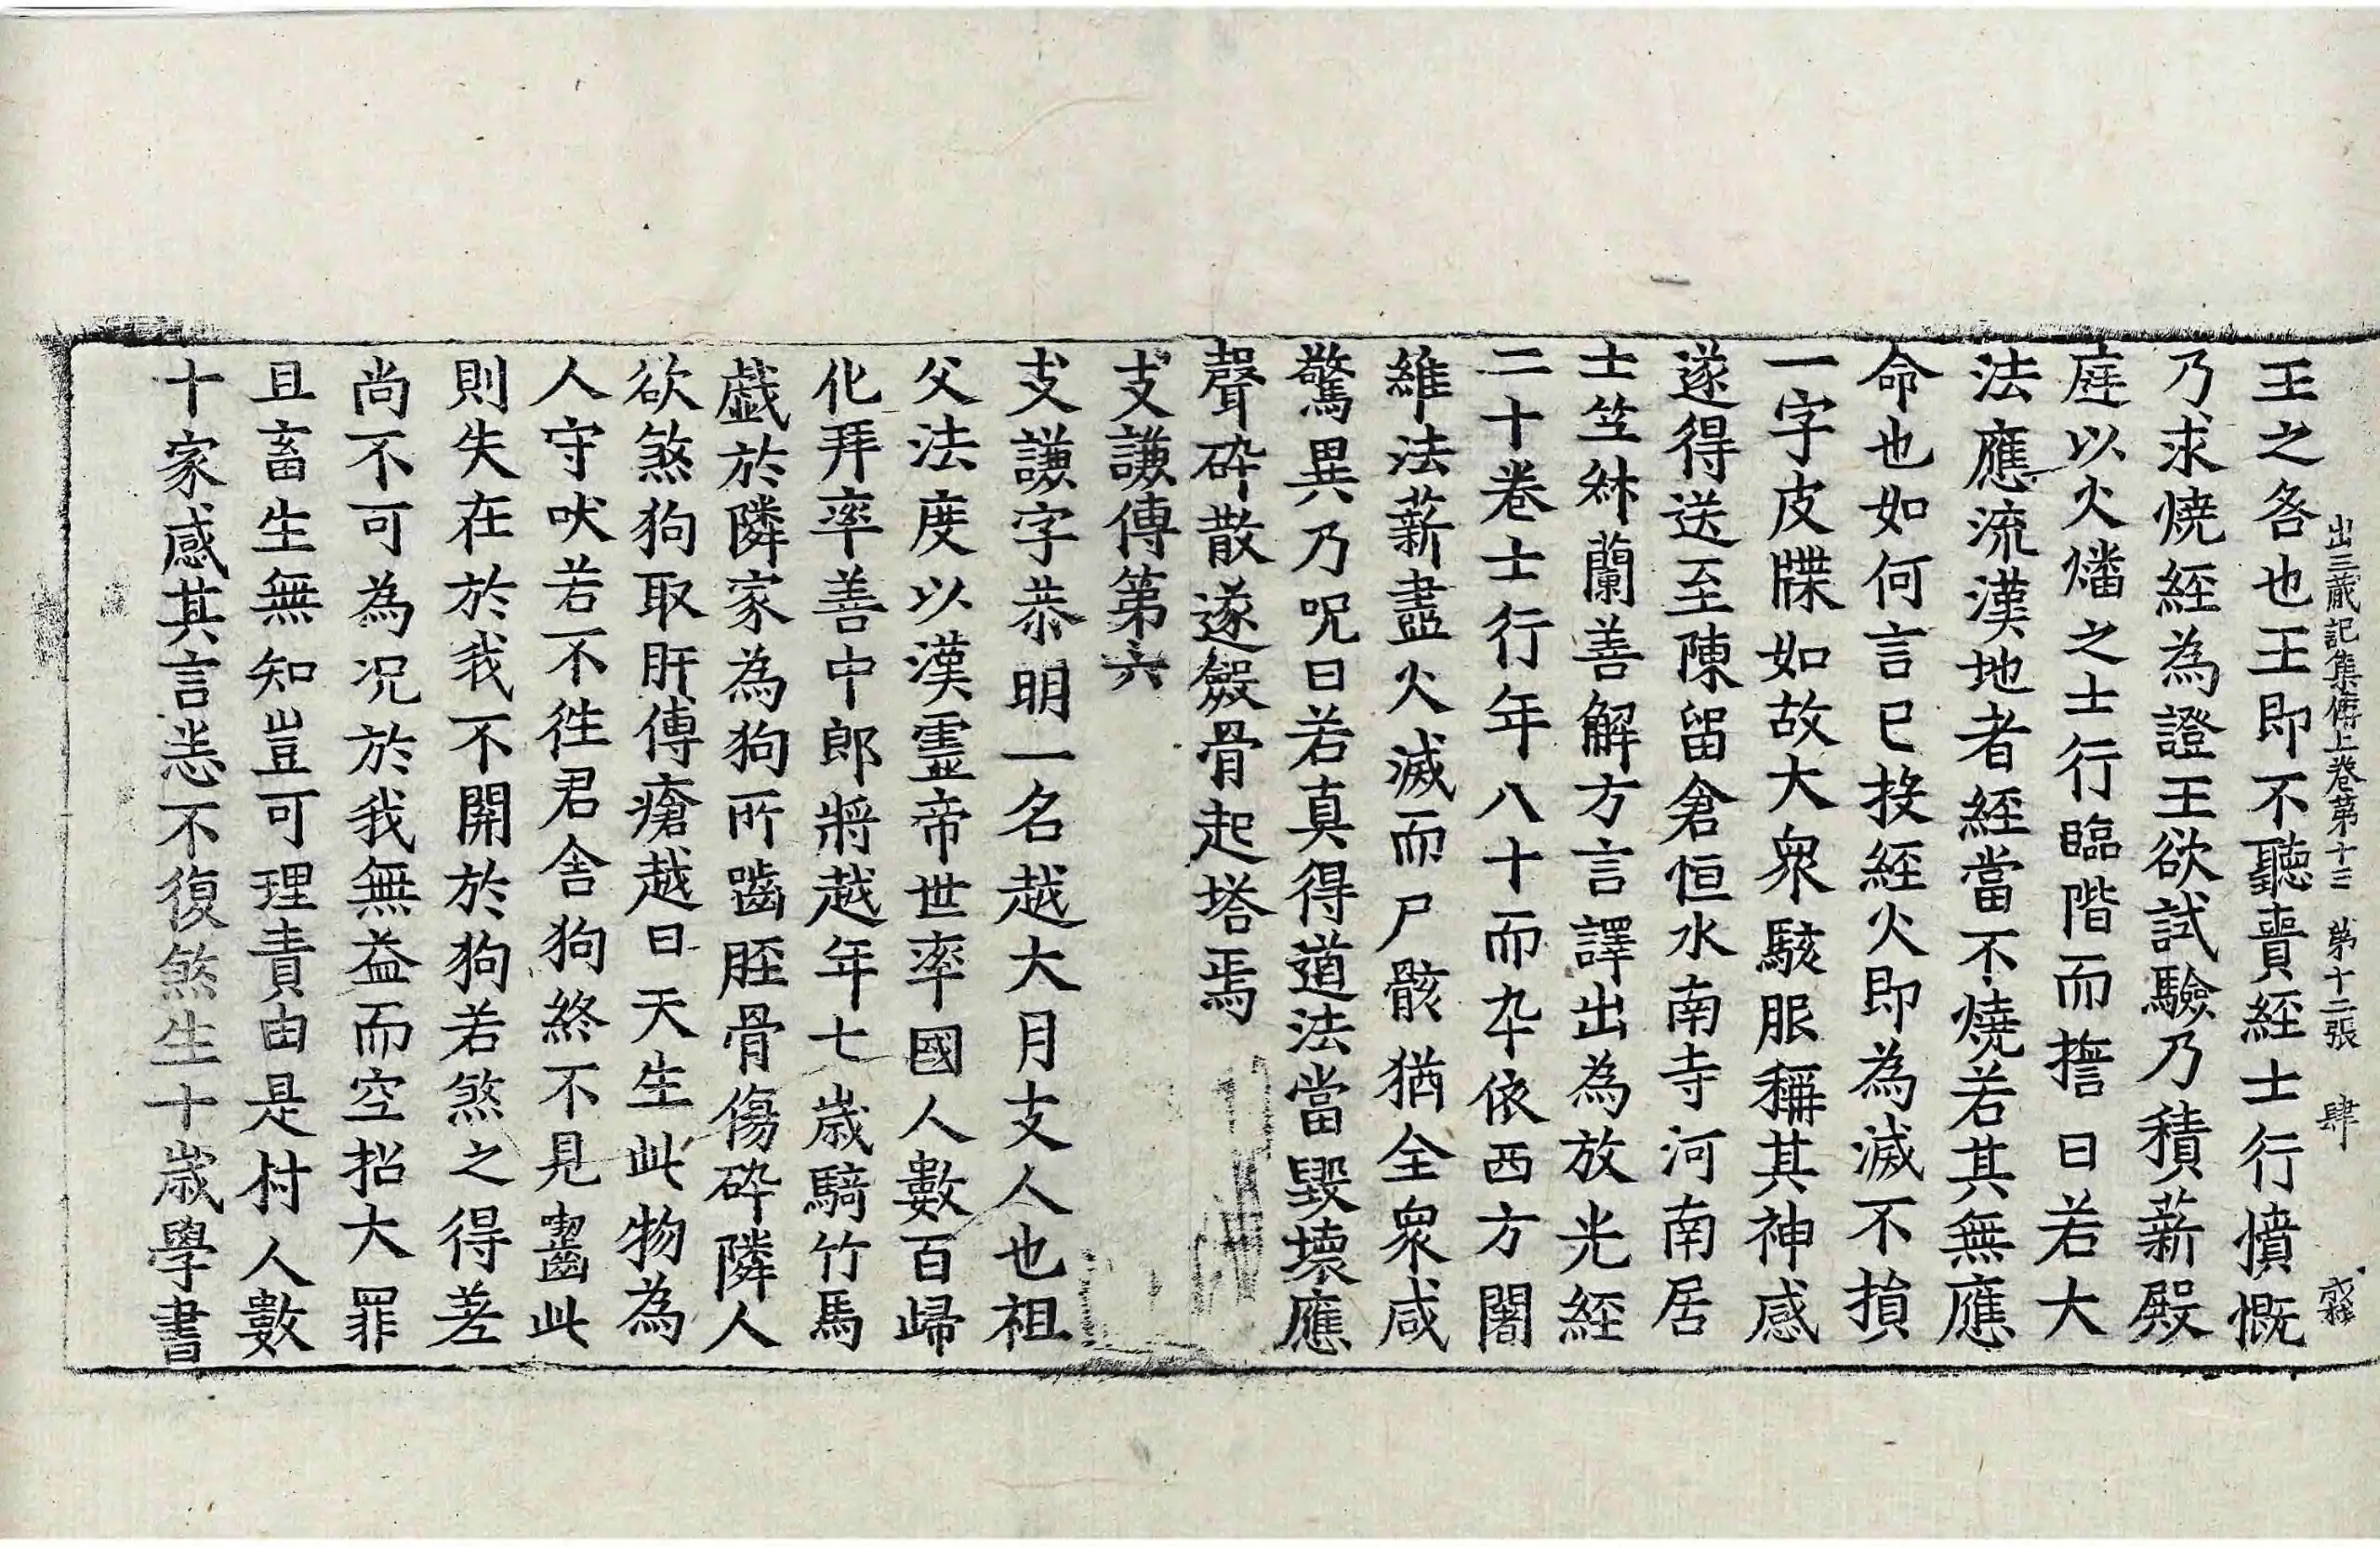 出三藏記集傳上卷第十三 第十二張 肆
王之咎也王即不聽賷經士行憤慨
乃求燒經為證王欲試驗乃積薪殿
庭以火燔之士行臨階而誓曰若大
法應流漢地者經當不燒若其無應
命也如何言已投經火即為滅不損
一字皮牒如故大衆駭服稱其神感
遂得送至陳留倉恒水南寺河南居
士竺叔蘭善解方言譯出為放光經
二十卷士行年八十而卒依西方闍
維法薪盡火滅而尸骸猶全衆咸
驚異乃呪曰若真得道法當毀壞應
聲碎散遂斂骨起塔焉
支謙傳第六
支謙字恭明一名越大月支人也祖
父法度以漢靈帝世率國人數百歸
化拜率善中郎將越年七歲騎竹馬
戲於隣家為狗所嚙脛骨傷碎隣人
欲煞狗取肝傅瘡越曰天生此物為
人守吠若不往君舍狗終不見齧此
則失在於我不開於狗若煞之得差
尚不可為况於我無益而空招大罪
且畜生無知豈可理責由是村人數
十家感其言悉不復煞生十歲學書